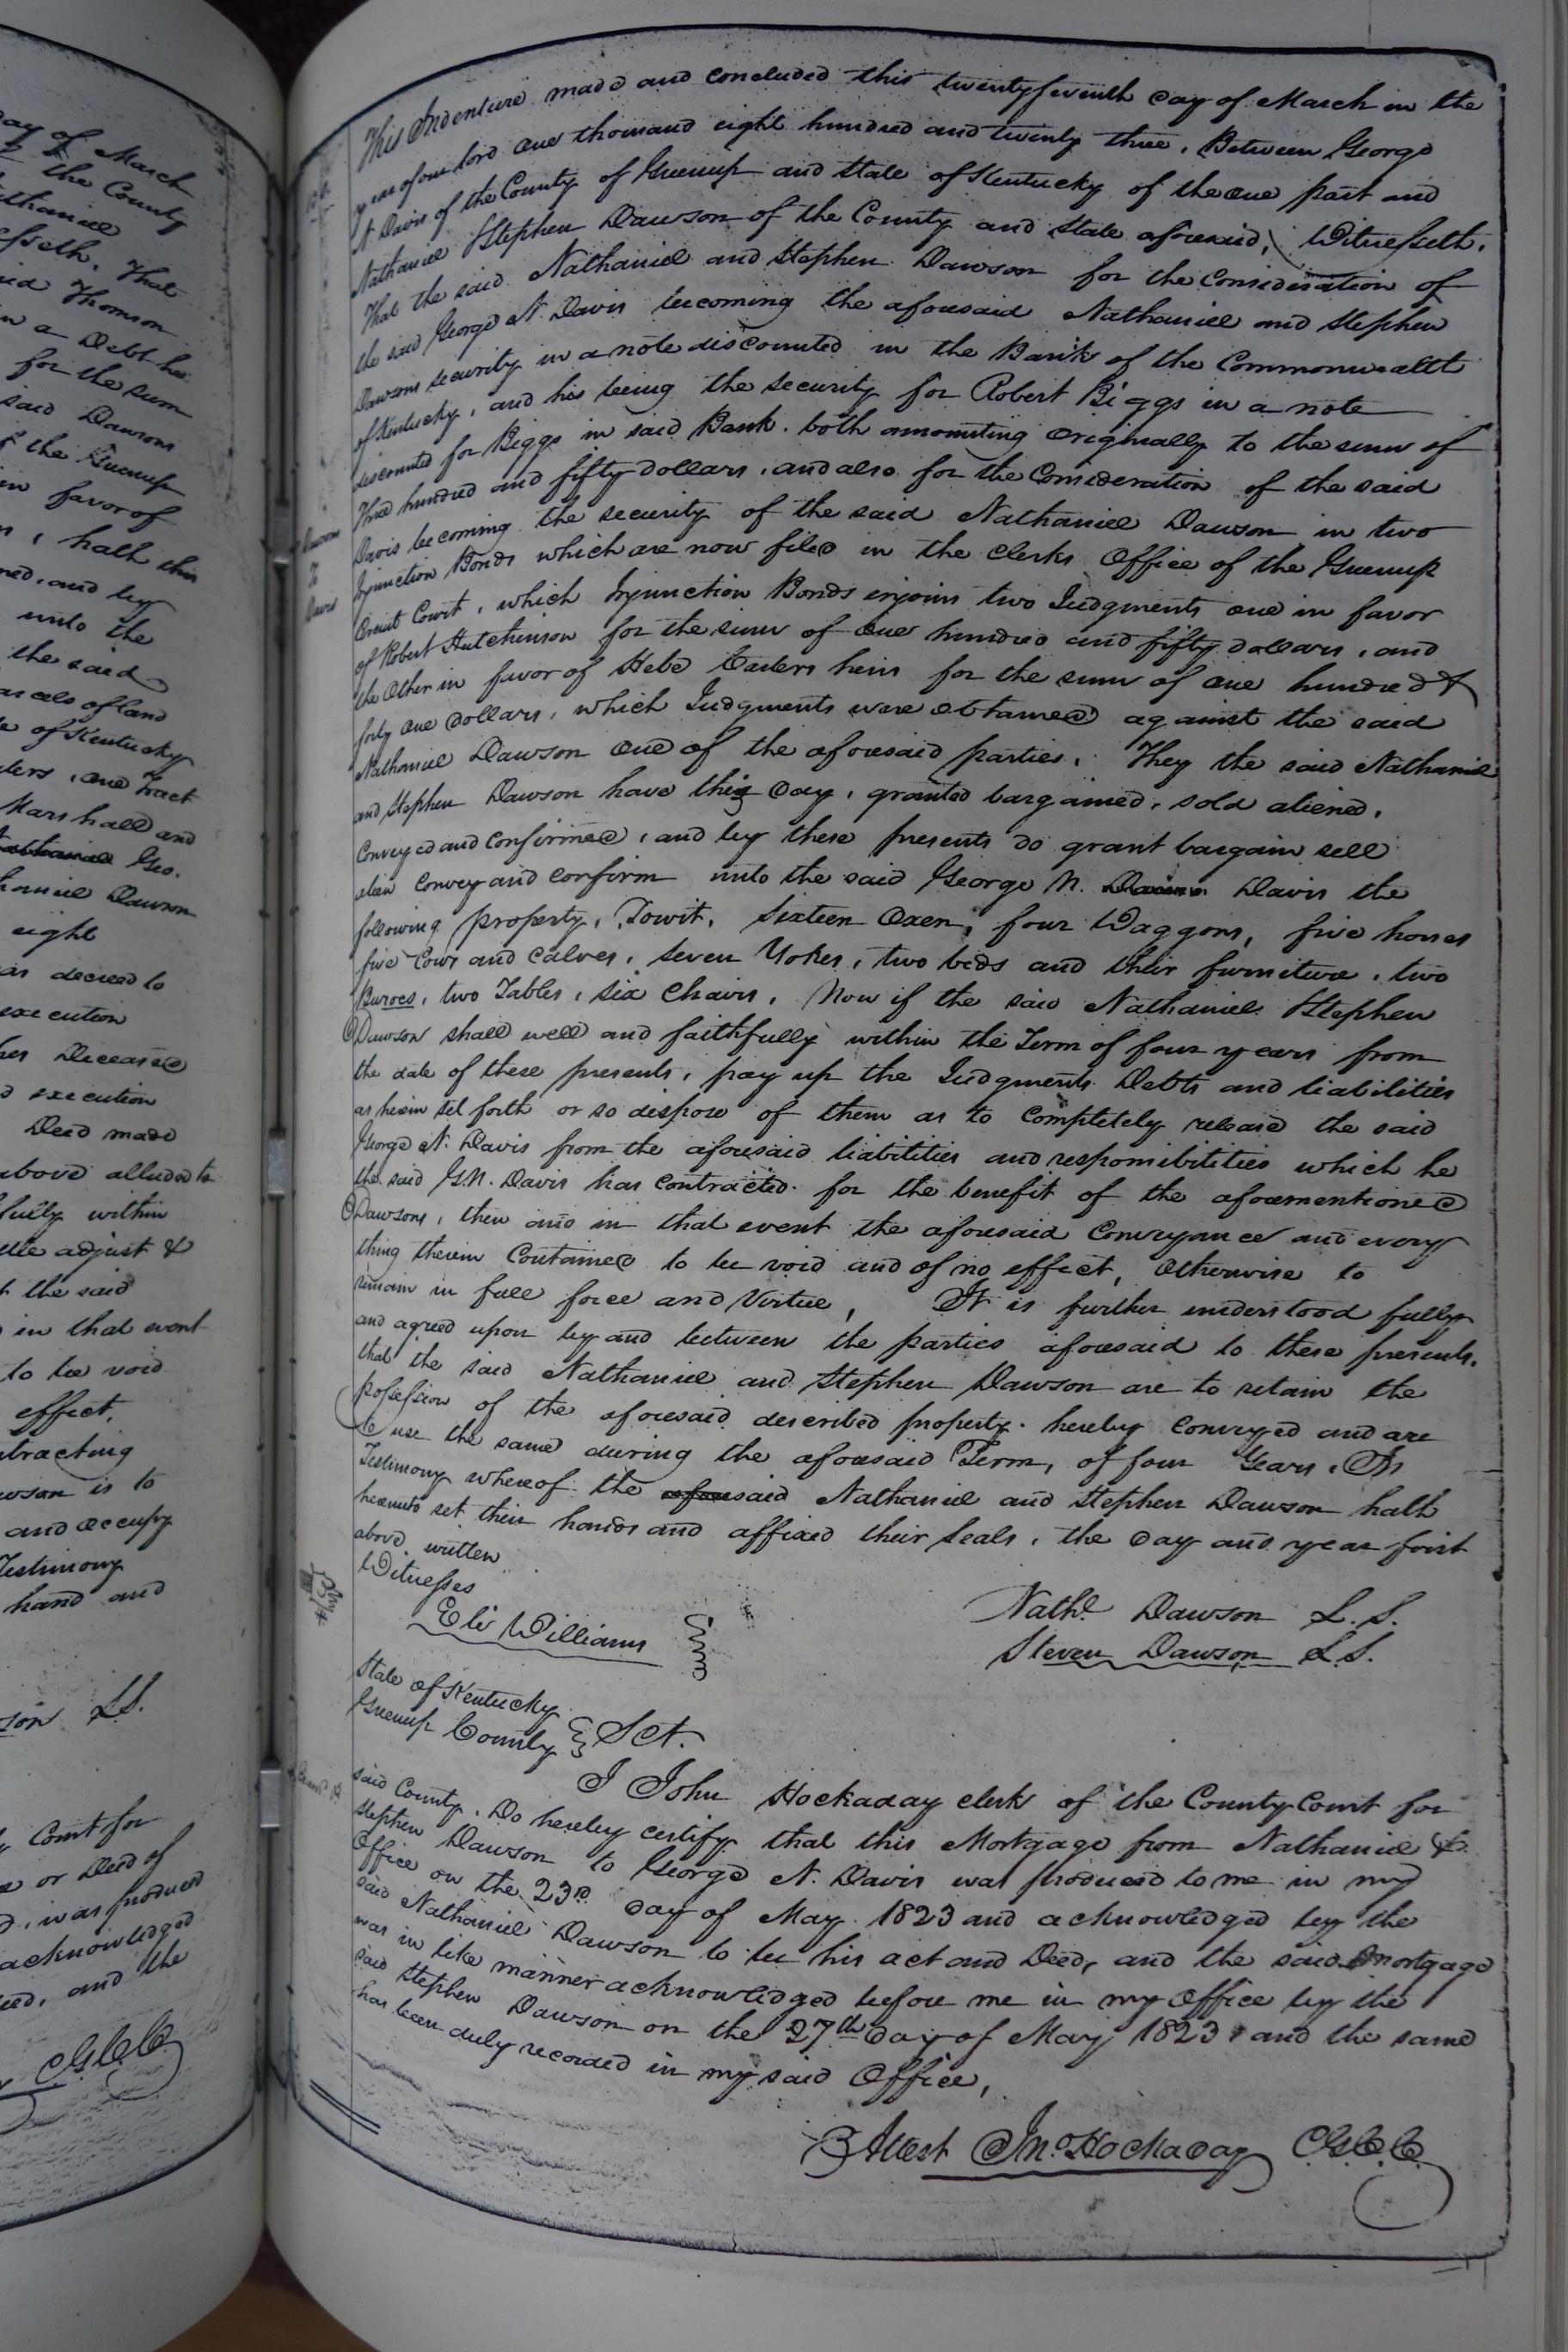 This Indenture made and concluded this twenty seventh day of March in the
year of our lord one thousand eight hundred and twenty three, Between George
N Davis of the County of Greenup and State of Kentucky of the one part and
Nathaniel & Stephen Dawson of the County and State aforesaid, Witnesseth.
That the said Nathaniel and Stephen Dawson for the Consideration of
the said George N. Davis becoming the aforesaid Nathaniel and Stephen
Dawsons security in a note discounted in the Bank of the Commonwealth
of Kentucky, and his being the security for Robert Biggs in a note
discounted for Biggs in said Bank. both amounting originally to the sum of
Three hundred and fifty dollars, and also for the Consideration of the said
Davis becoming the security of the said Nathaniel Dawson in two
Injunction Bonds which are now filed in the Clerks Office of the Greenup
Circuit Court, which Injunction Bonds enjoins two Judgments one in favor
of Robert Hutchinson for the sum of one hundred and fifty dollars, and
the Other in favor of heirs for the sum of one hundred &
forty one dollars, which Judgments were obtained against the said
Nathaniel Dawson one of the aforesaid parties. They the said Nathaniel
and Stephen Dawson have this day, granted bargained, sold aliened,
Conveyed and Confirmed, and by these presents do grant bargain sell
alien Convey and confirm unto the said George N. Davis the
following property, Towit, Sixteen Oxen, four Waggons, five horses
five Cows and Calves, seven Yokes, two beds and their furniture, two
Buroes, two Tables, six Chairs, Now if the said Nathaniel & Stephen
Dawson shall well and faithfully within the Term of four years from
the date of these presents, pay up the Judgments Debts and liabilities
as herein set forth or so dispose of them as to Completely release the said
George N. Davis from the aforesaid liabilities and responsibilities which he
the said G.N. Davis has Contracted for the benefit of the aforementioned
Dawsons, then and in that event the aforesaid Conveyance and every
thing therein Contained to be void and of no effect, Otherwise to
remain in full force and Virtue, It is further understood fully
and agreed upon by and between the parties aforesaid to these presents.
that the said Nathaniel and Stephen Dawson are to retain the
possession of the aforesaid described property hereby Conveyed and are
to use the same during the aforesaid Term, of four Years. In
Testimony whereof the aforesaid Nathaniel and Stephen Dawson hath
hereunto set their hands and affixed their Seals, the day and year first
above written
Witnesses
Eli Williams
Nathl Dawson L. S.
Steven Dawson L.S.
State of Kentucky
Greenup County } Sct.
I John Hockaday clerk of the County Court for
said County, Do hereby certify that this Mortgage from Nathaniel &
Stephen Dawson to George N. Davis was produced to me in my
Office on the 23rd day of May 1823 and acknowledged by the
said Nathaniel Dawson to be his act and Deed, and the said Mortgage
was in like manner acknowledged before me in my Office by the
said Stephen Dawson on the 27th day of May 1823 and the same
has been duly recorded in my said Office,
Attest Jno Hockaday C.G.C.C.